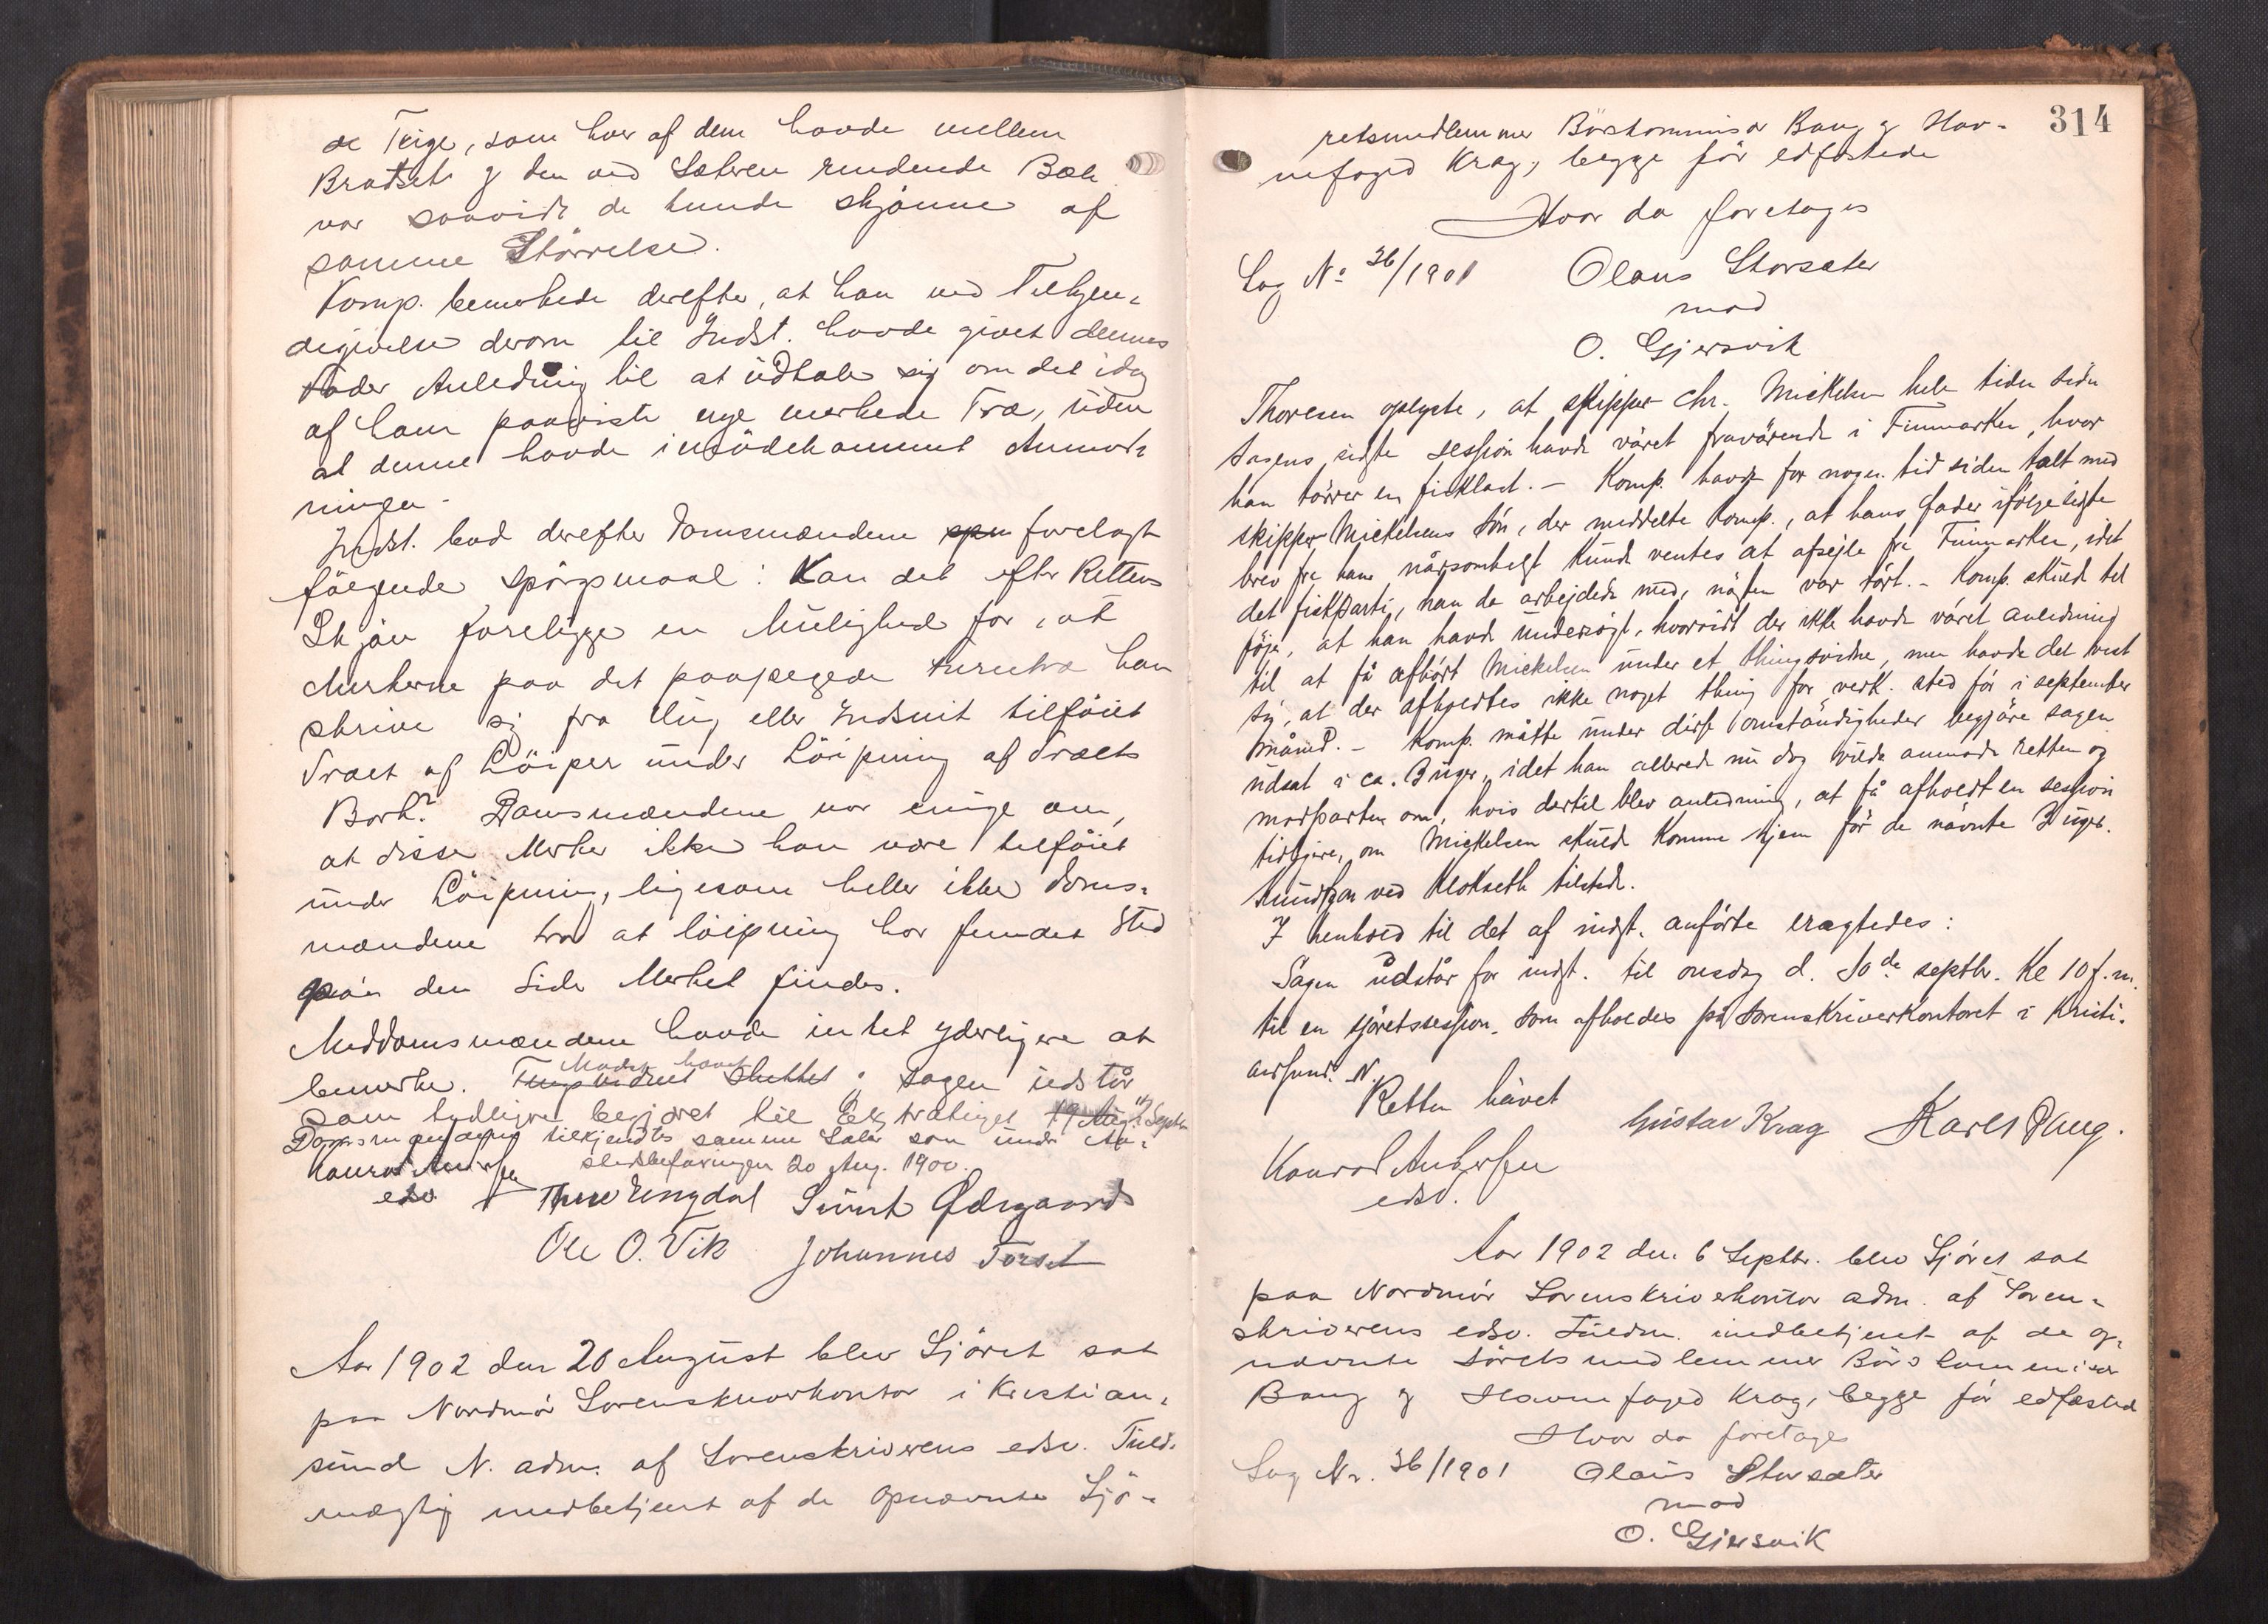 de Teige, som hver af dem havde mellem
Bratsæt & den ved Sæteren rendende Bæk
var saavidt de kunde skjönne af
samme Störrelse.
Komp. bemerkede derefter, at han ved Tilkjen-
degivelse derom til Indst. havde givet dennes
Fader Anledning til at udtale sig om det idag
af ham paaviste nye merkede Træ, uden
at denne havde imödekommet Anmod-
ningen.
Indst. bad derefter Domsmændene forelagt
fölgende Spörgsmaal: Kan det efter Rettens
Skjön foreligge en Mulighed for, at
Merkerne paa det paapegede Furutræ kan
skrive sig fra Hug eller Indsnit tilföiet
Træet af Löiper under Löipning af Træets
Bark? Domsmændene var enige om,
at disse Merker ikke kan være tilföiet
under Löipning, ligesom heller ikke Doms-
mændene tror at löipning har fundet Sted
paa den Side Merket findes.
Meddomsmændene havde intet yderligere at
bemerke. Tingvidnet sluttet & Sagen udstår
Mødet hævet
som tydligere begjæret til Extratinget 19 Aug. Septr
Domsmændene tilkjendtes samme Salær som under Aa-
stedsbefaringen 20 Aug. 1900.
Konrad Andersen
edsv. Thore Engdal Sivert Ødegaard
Ole O. Vik Johannes Torset
Aar 1902 den 20 August blev Sjöret sat
paa Nordmör Sorenskriverkontor i Kristian-
sund N. adm. af Sorenskriverens edsv. Fuld-
mægtig medbetjent af de opnævnte Sjö-
314
retsmedlemmer Börskommisær Bang & Hav-
nefoged Krag, begge för edfæstede
Hvor da foretages
Sag No 36/1901 Olaus Storsæter
mod
O. Gjersvik
Thoresen oplyste, at skipper Chr. Mickelsen hele tiden siden
sagens sidste session havde väret fraværende i Finmarken, hvor
han törrer en fisklast. – Komp. havde for nogen tid siden talt med
skipper Mickelsens sön, der meddelte komp., at hans fader ifölge sidste
brev fra ham nårsomhelst kunde ventes at afsejle fra Finmarken, idet
det fiskparti, han da arbejdede med, nästen var tört. – Komp. skulde til
föje, at han havde undersögt, hvorvidt der ikke havde väret anledning
til at få afhört Mickelsen under et thingsvidne, men havde det vist
sig, at der afholdtes ikke noget thing for vedk. sted för i september
måned. – Komp. måtte under disse omständigheder begjäre sagen
udsat i ca. 3 uger, idet han allerede nu dog vilde anmode retten og
modparten om, hvis dertil blev anledning, at få afholdt en session
tidligere, om Mickelsen skulde komme hjem för de nävnte 3 uger.
Knudtzon ved Klokseth tilstede.
I henhold til det af indst. anförte eragtedes:
Sagen udstår for indst. til onsdag d. 10de septbr. Kl 10 f.m.
til en sjöretssession, som afholdes på sorenskriverkontoret i Kristi-
ansund N.
Retten hävet
Gustav Krag Karl Bang.
Konrad Andersen
edsv.
Aar 1902 den 6 Septbr. blev Sjöret sat
paa Nordmör Sorenskriverkontor adm. af Soren-
skriverens edsv. Fuldm. medbetjent af de op-
nævnte Sörets medlemmer Börskommisær
Bang & Havnefoged Krag, begge för edfæsted
Hvor da foretages
Sag Nr. 36/1901 Olaus Storsæter
mod
O. Gjersvik